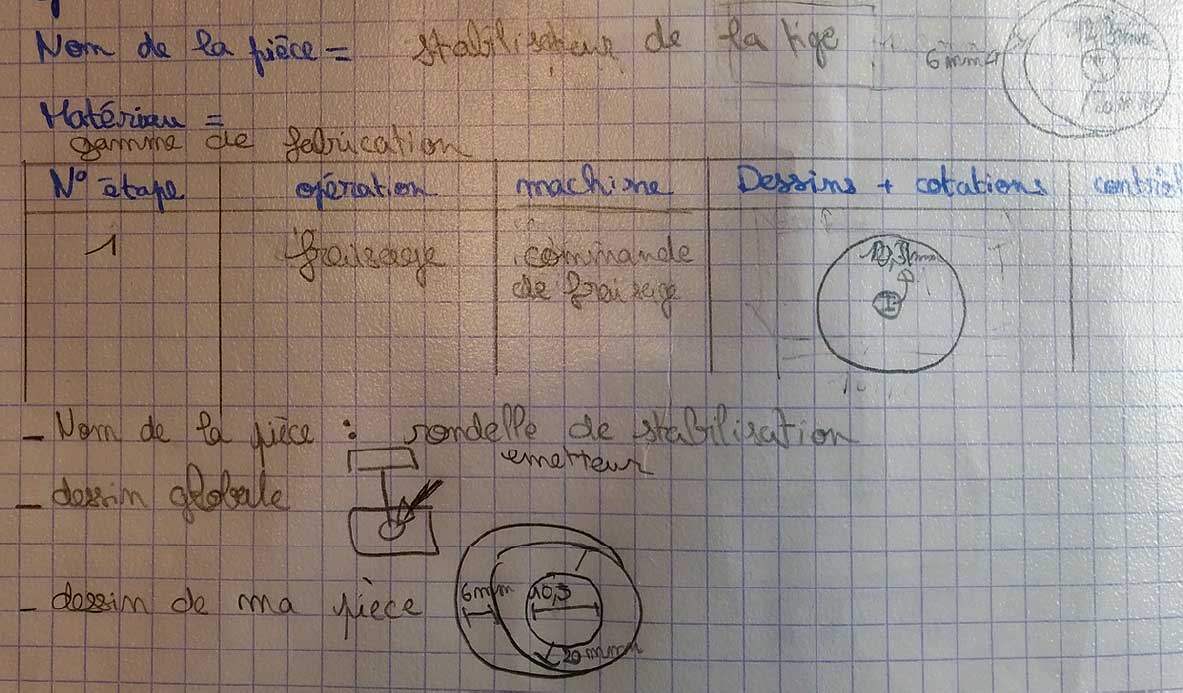 Nom de la pièce = stabilisateur de la tige
6mm
Matériau =
gamme de fabrication
N° étape opération machine Dessins + cotations contrôl
1 fraisage commande
de fraisage
10,3mm
- Nom de la pièce : rondelle de stabilisation
emetteur
- dessin globale
- dessin de ma pièce
6mm 10,3
20mm